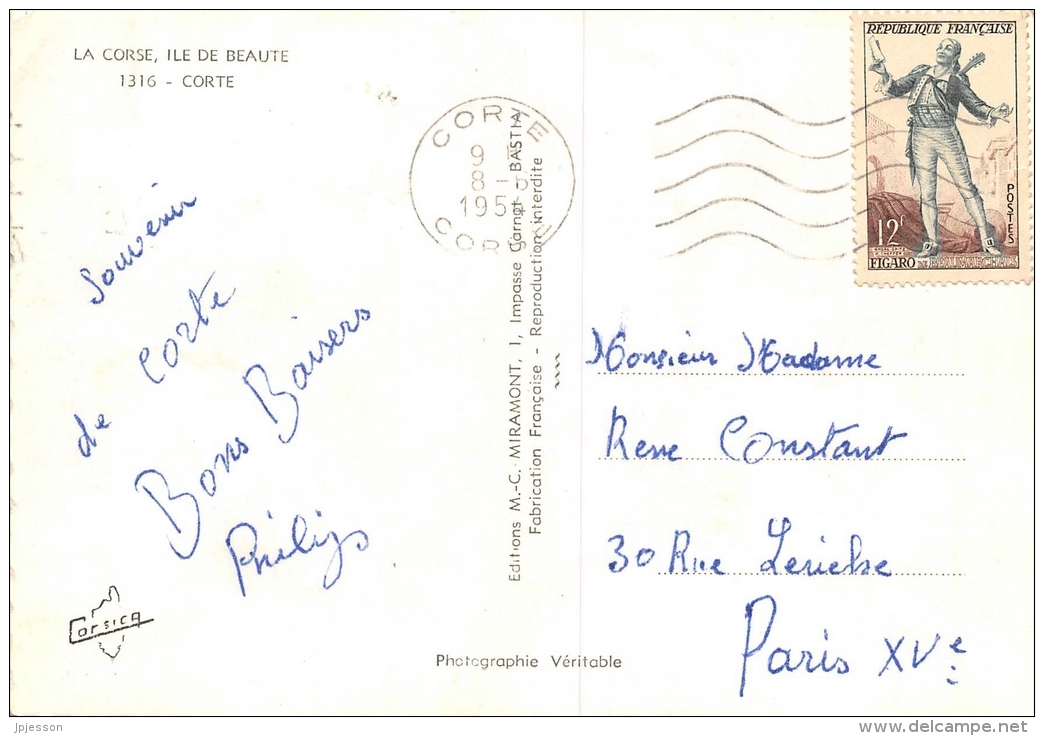 LA CORSE, ILE DE BEAUTE
1316 - CORTE
Souvenir
de Corte
Bons Baisers
Corsica
Editions M.-C. MIRAMONT, 1, Impasse Garnot - BASTIA
Fabrication Française - Reproduction interdite
Photographie Véritable
CORTE
9 H
8 -
CORSE
RÉPUBLIQUE FRANÇAISE
POSTES
12f
FIGARO DE BEAUMARCHAIS
Monsieur Madame
Rene Constant
30 Rue
Paris XVe
jpjesson
www.delcampe.net